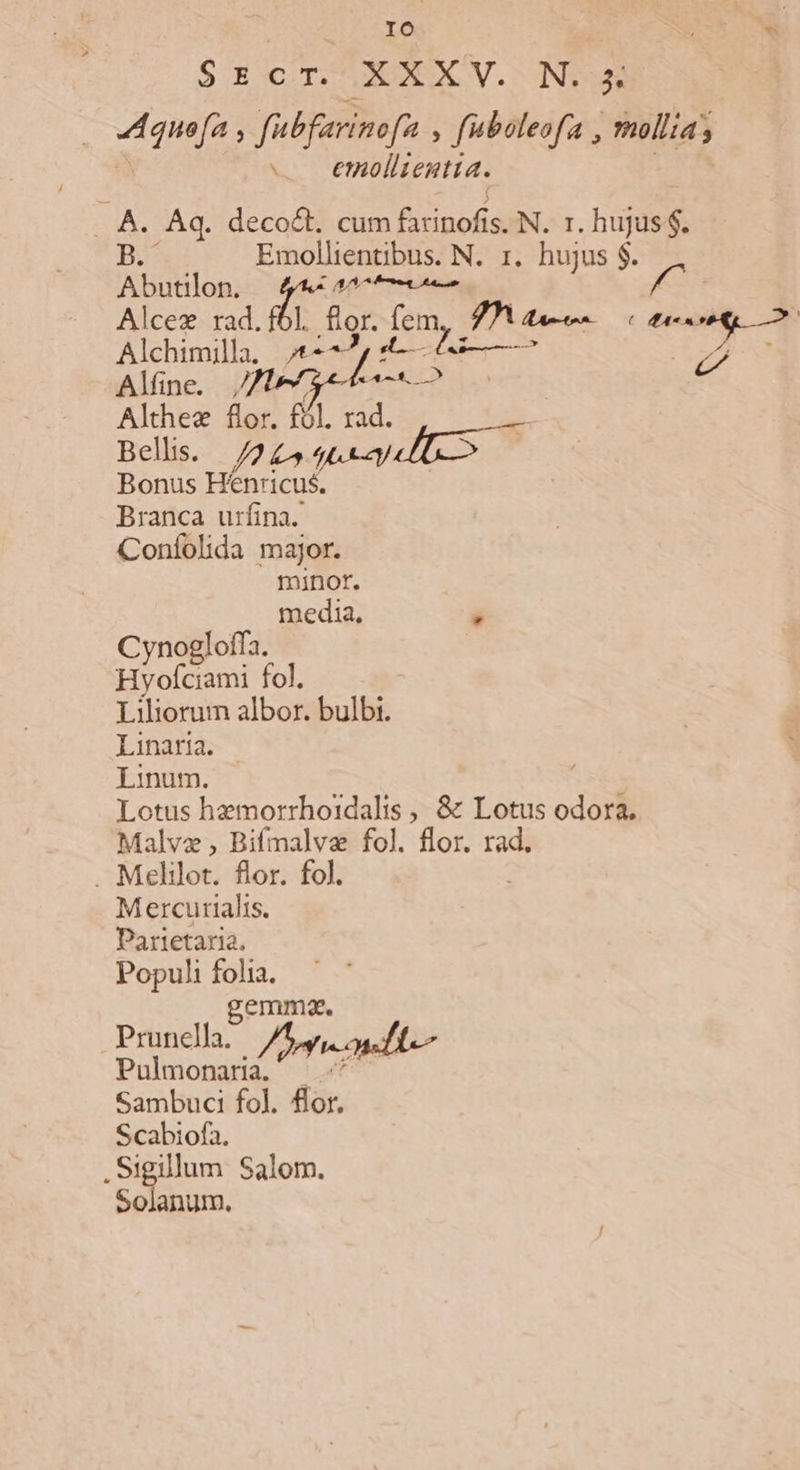 10
SECT. XXXV. N. 3.
Aquoſa , ſubfarinoſa , ſuboleoſa , mollia,
emollientia.
A. Aq. decoct. cum farinoſis. N. 1. hujus §.
B. Emollientibus. N. 1. hujus §.
Abutilon.
Alceæ rad. fol. flor. ſem,
Alchimilla.
Alſine.
Altheæ flor. fol. rad.
Bellis.
Bonus Henricus.
Branca urſina.
Conſolida major.
minor.
media.
Cynogloſſa.
Hyoſciami fol.
Liliorum albor. bulbi.
Linaria.
Linum.
Lotus hæmorrhoidalis , & Lotus odora.
Malvæ , Biſmalvæ fol. flor. rad.
Melilot. flor. fol.
Mercurialis.
Parietaria.
Populi folia.
gemmæ.
Prunella.
Pulmonaria.
Sambuci fol. flor.
Scabioſa.
Sigillum Salom.
Solanum.